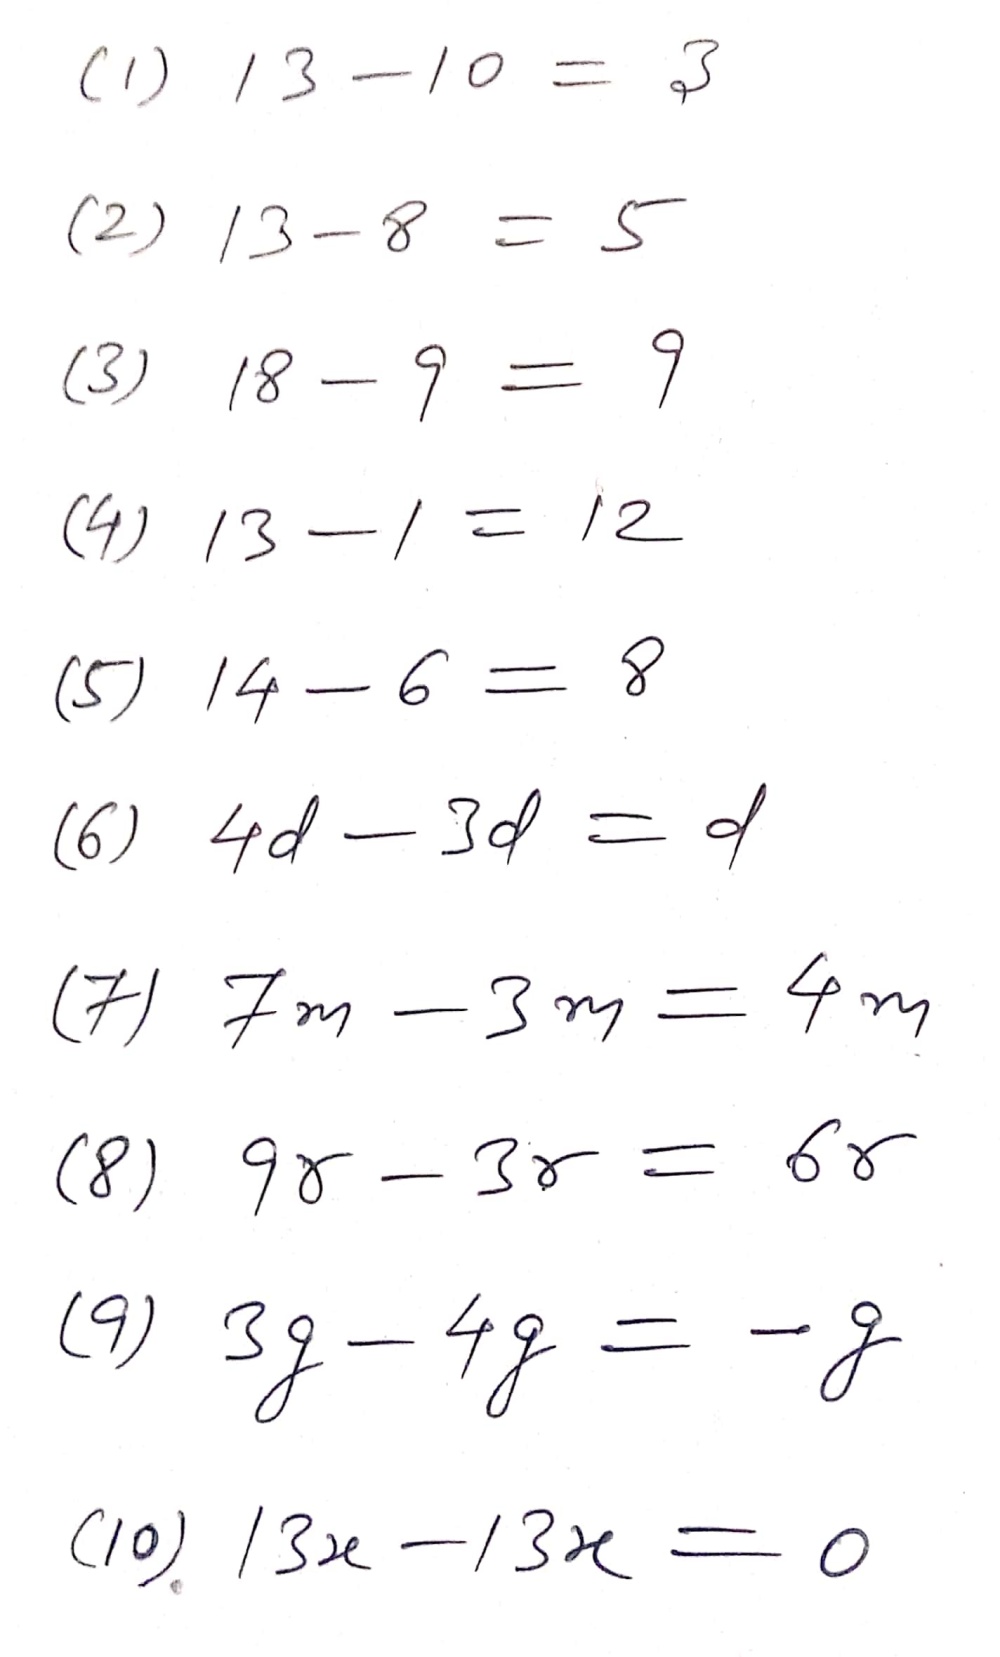 (1) 13 - 10 = 3
(2) 13 - 8 = 5
(3) 18 - 9 = 9
(4) 13 - 1 = 12
(5) 14 - 6 = 8
(6) 4d - 3d = d
(7) 7m - 3m = 4m
(8) 9r - 3r = 6r
(9) 3g - 4g = -g
(10). 13x - 13x = 0